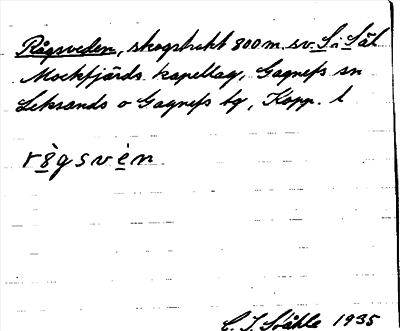 Rågsveden, skogstrakt 800 m sv S i Säl
Mockfjärds kapellag, Gagnefs sn
Leksands o Gagnefs tg, Kopp. l
rògsvèn.
C. I. Ståhle 1935